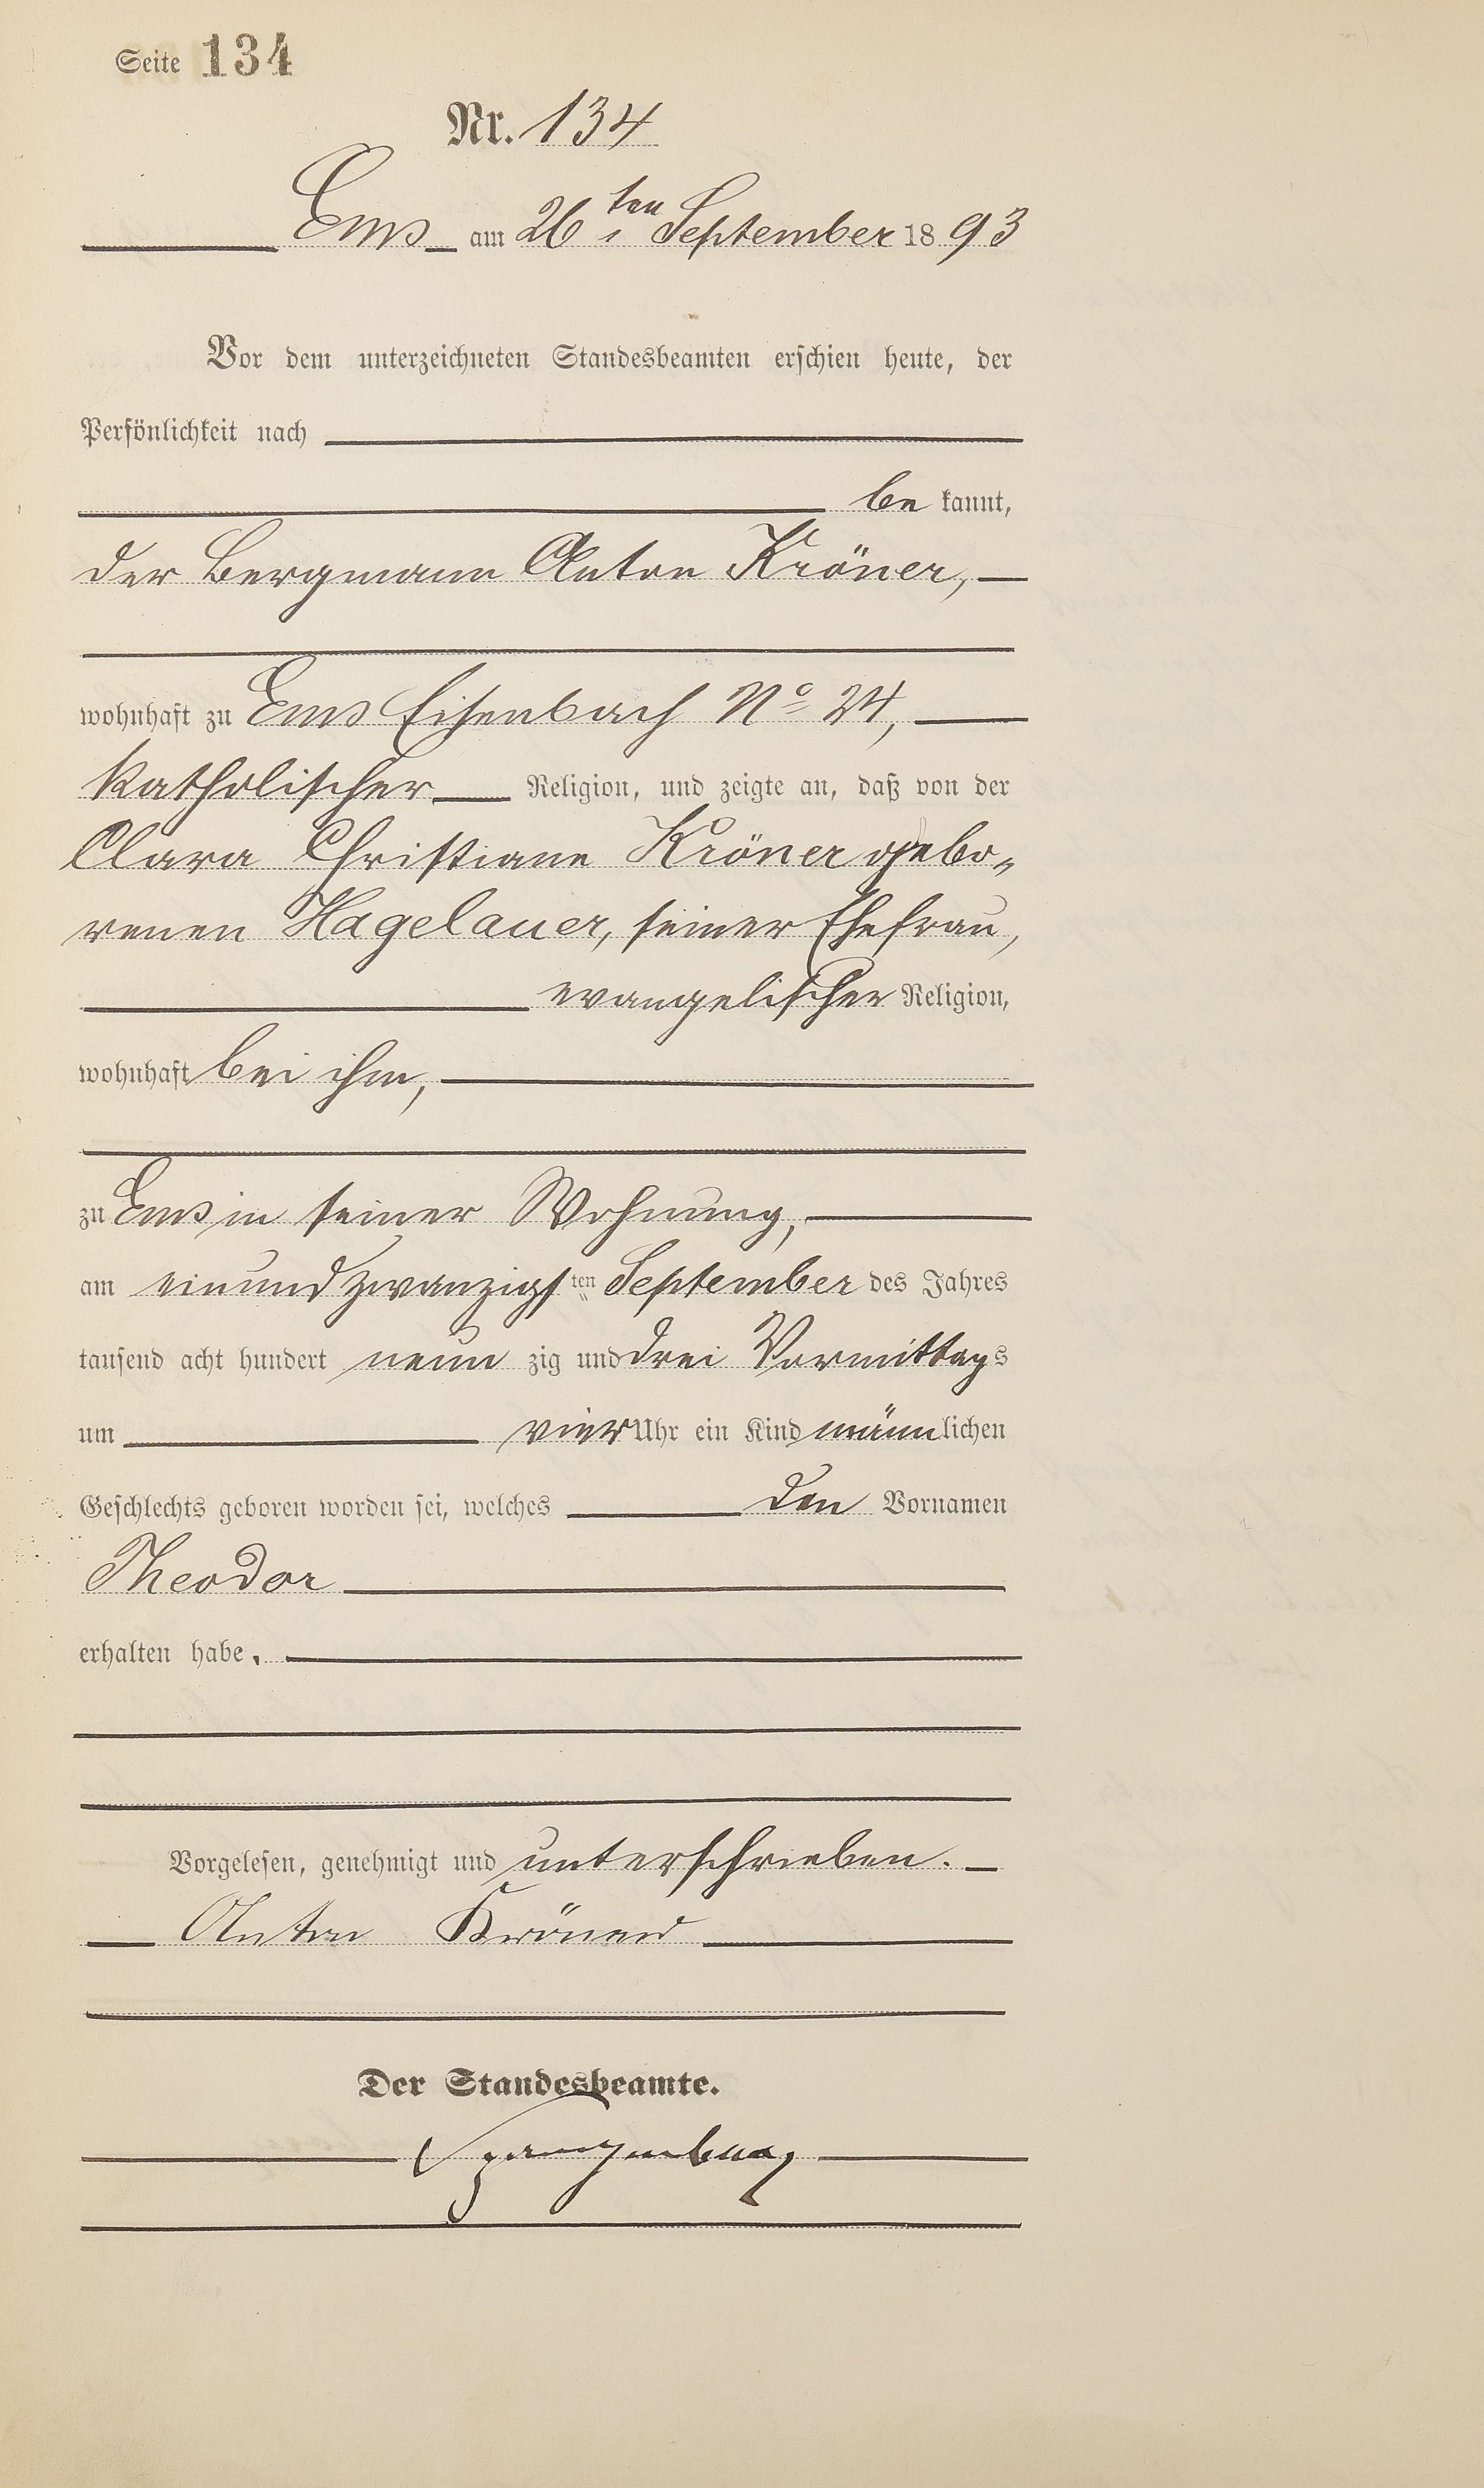 Seite 134
Nr. 134
Ems am 26ten September 1893
Vor dem unterzeichneten Standesbeamten erschien heute, der
Persönlichkeit nach
be kannt,
der Bergmann Anton Kröner,
wohnhaft zu Ems Eisenbach No 24,
katholischer Religion, und zeigte an, daß von der
Clara Christiane Kröner gebo„
renen Hagelauer, seiner Ehefrau,
evangelischer Religion,
wohnhaft bei ihm,
zu Ems in seiner Wohnung,
am einundzwanzigsten September des Jahres
tausend acht hundert neun zig und drei Vormittags
um vier Uhr ein Kind männlichen
Geschlechts geboren worden sei, welches den Vornamen
Theodor
erhalten habe.
Vorgelesen, genehmigt und unterschrieben.
Anton Kröner
Der Standesbeamte.
Spangenberg